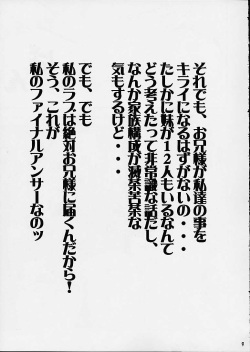 それでも、お兄様が私達の事を
キライになるはずがないの・・・
たしかに妹が１２人もいるなんて
どう考えたって非常識な話だし、
なんか家族構成が滅茶苦茶な
気もするけど・・・
でも、でも
私のラブは絶対お兄様に届くんだから！
そう、これが
私のファイナルアンサーなのッ